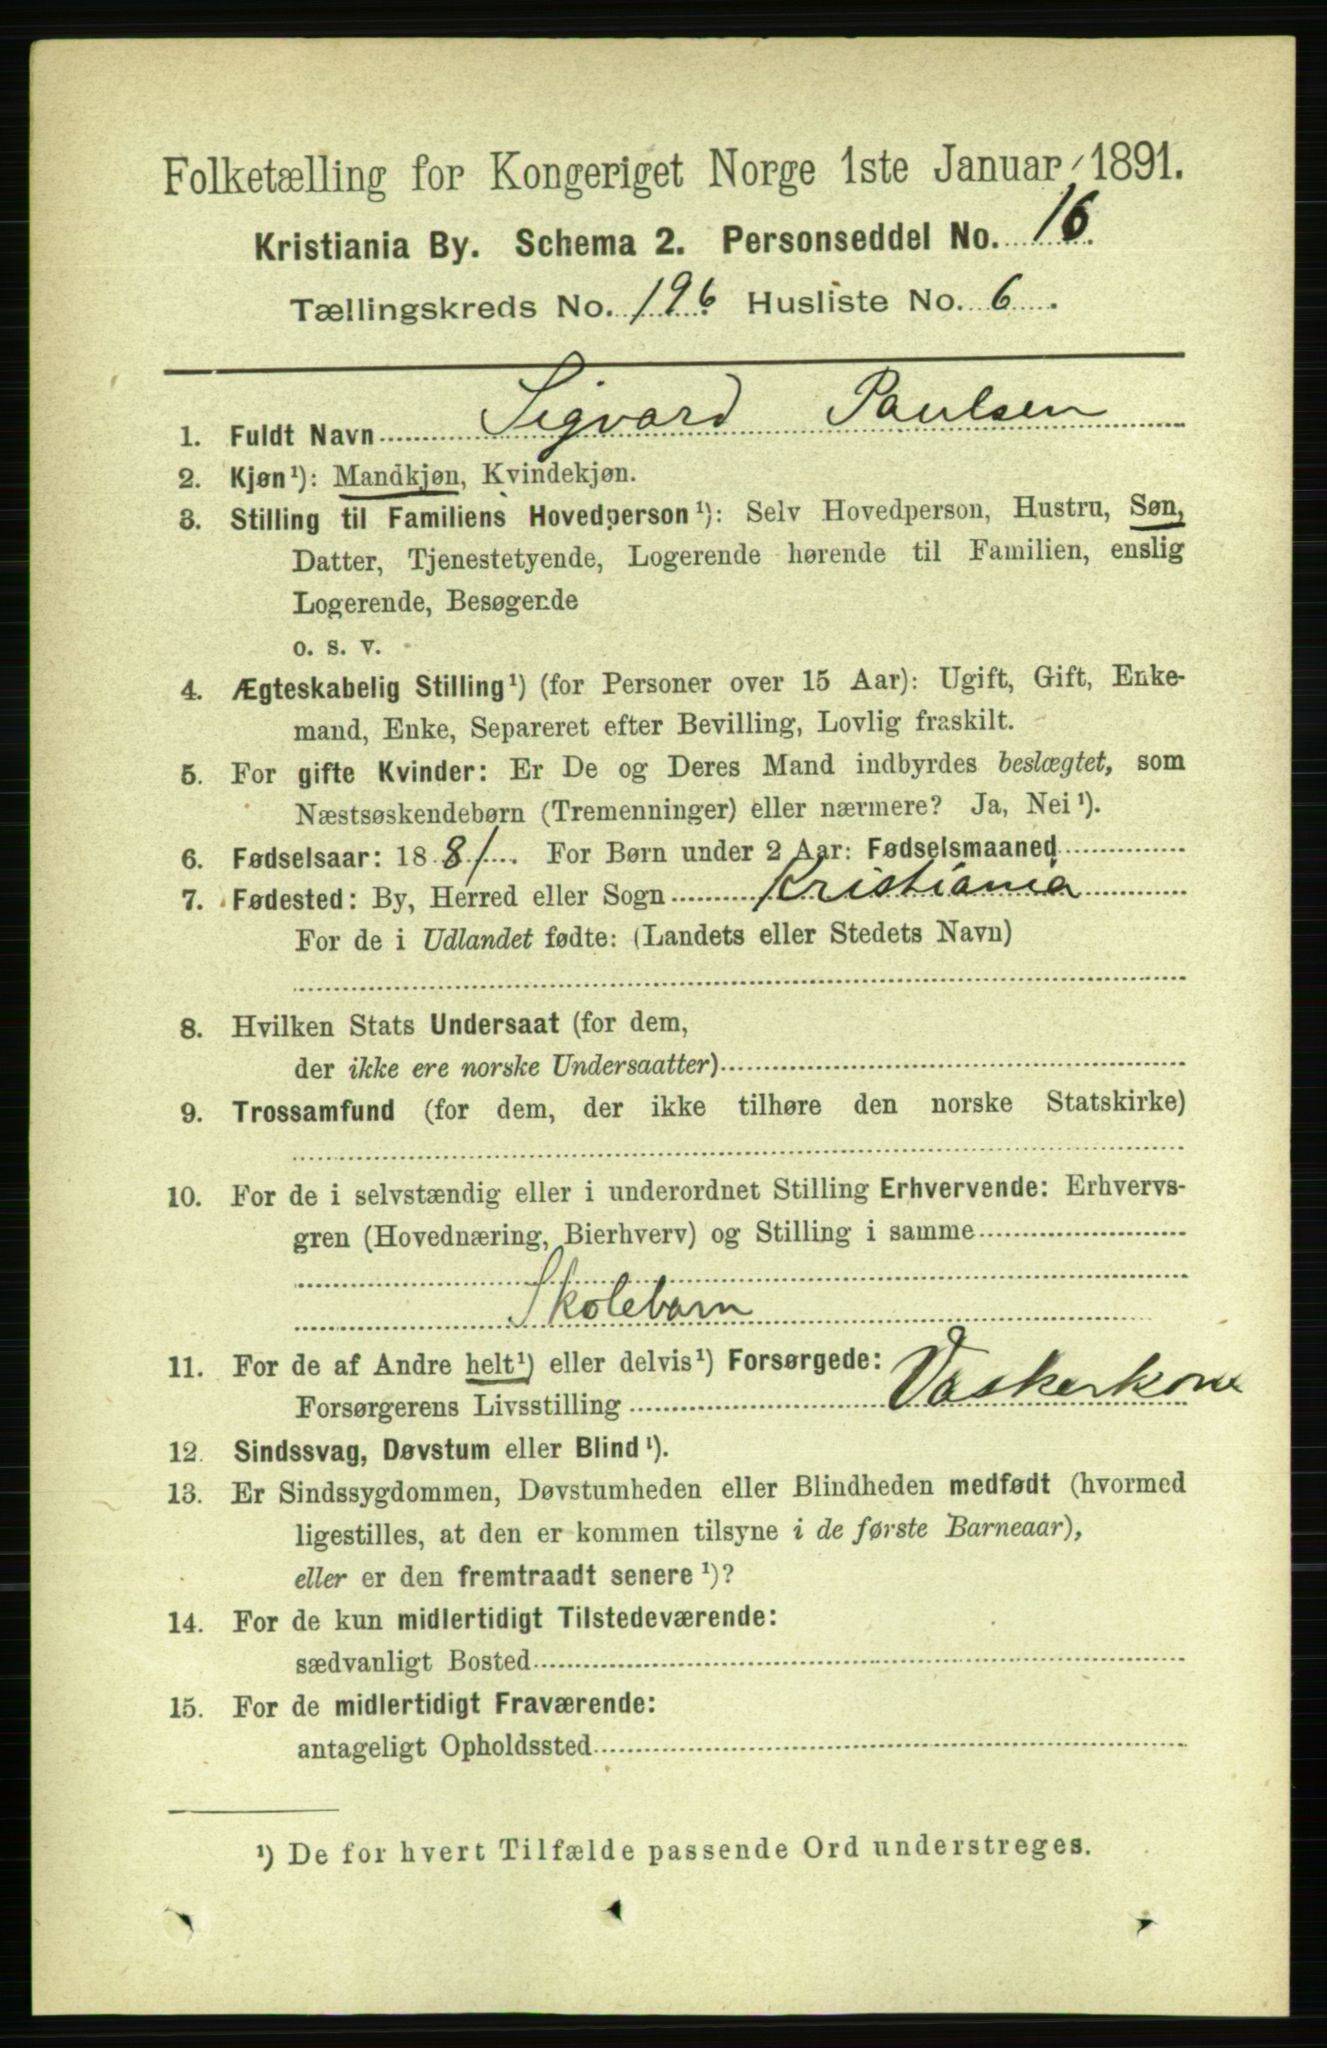 Folketælling for Kongeriget Norge 1ste Januar 1891.
Kristiania By. Schema 2. Personseddel No. 16.
Tællingskreds No. 196 Husliste No. 6.
1. Fuldt Navn Sigvard Paulsen
2. Kjøn¹): Mandkjøn, Kvindekjøn.
3. Stilling til Familiens Hovedperson¹): Selv Hovedperson, Hustru, Søn,
Datter, Tjenestetyende, Logerende hørende til Familien, enslig
Logerende, Besøgende
o. s. v.
4. Ægteskabelig Stilling¹) (for Personer over 15 Aar): Ugift, Gift, Enke-
mand, Enke, Separeret efter Bevilling, Lovlig fraskilt.
5. For gifte Kvinder: Er De og Deres Mand indbyrdes beslægtet, som
Næstsøskendebørn (Tremenninger) eller nærmere? Ja, Nei¹).
6. Fødselsaar: 1881. For Børn under 2 Aar: Fødselsmaaned
7. Fødested: By, Herred eller Sogn Kristiania
For de i Udlandet fødte: (Landets eller Stedets Navn)
8. Hvilken Stats Undersaat (for dem,
der ikke ere norske Undersaatter)
9. Trossamfund (for dem, der ikke tilhøre den norske Statskirke)
10. For de i selvstændig eller i underordnet Stilling Erhvervende: Erhvervs-
gren (Hovednæring, Bierhverv) og Stilling i samme
Skolebarn
11. For de af Andre helt¹) eller delvis¹) Forsørgede:
Forsørgerens Livsstilling Vaskerkone
12. Sindssvag, Døvstum eller Blind¹).
13. Er Sindssygdommen, Døvstumheden eller Blindheden medfødt (hvormed
ligestilles, at den er kommen tilsyne i de første Barneaar),
eller er den fremtraadt senere¹)?
14. For de kun midlertidigt Tilstedeværende:
sædvanligt Bosted
15. For de midlertidigt Fraværende:
antageligt Opholdssted
¹) De for hvert Tilfælde passende Ord understreges.